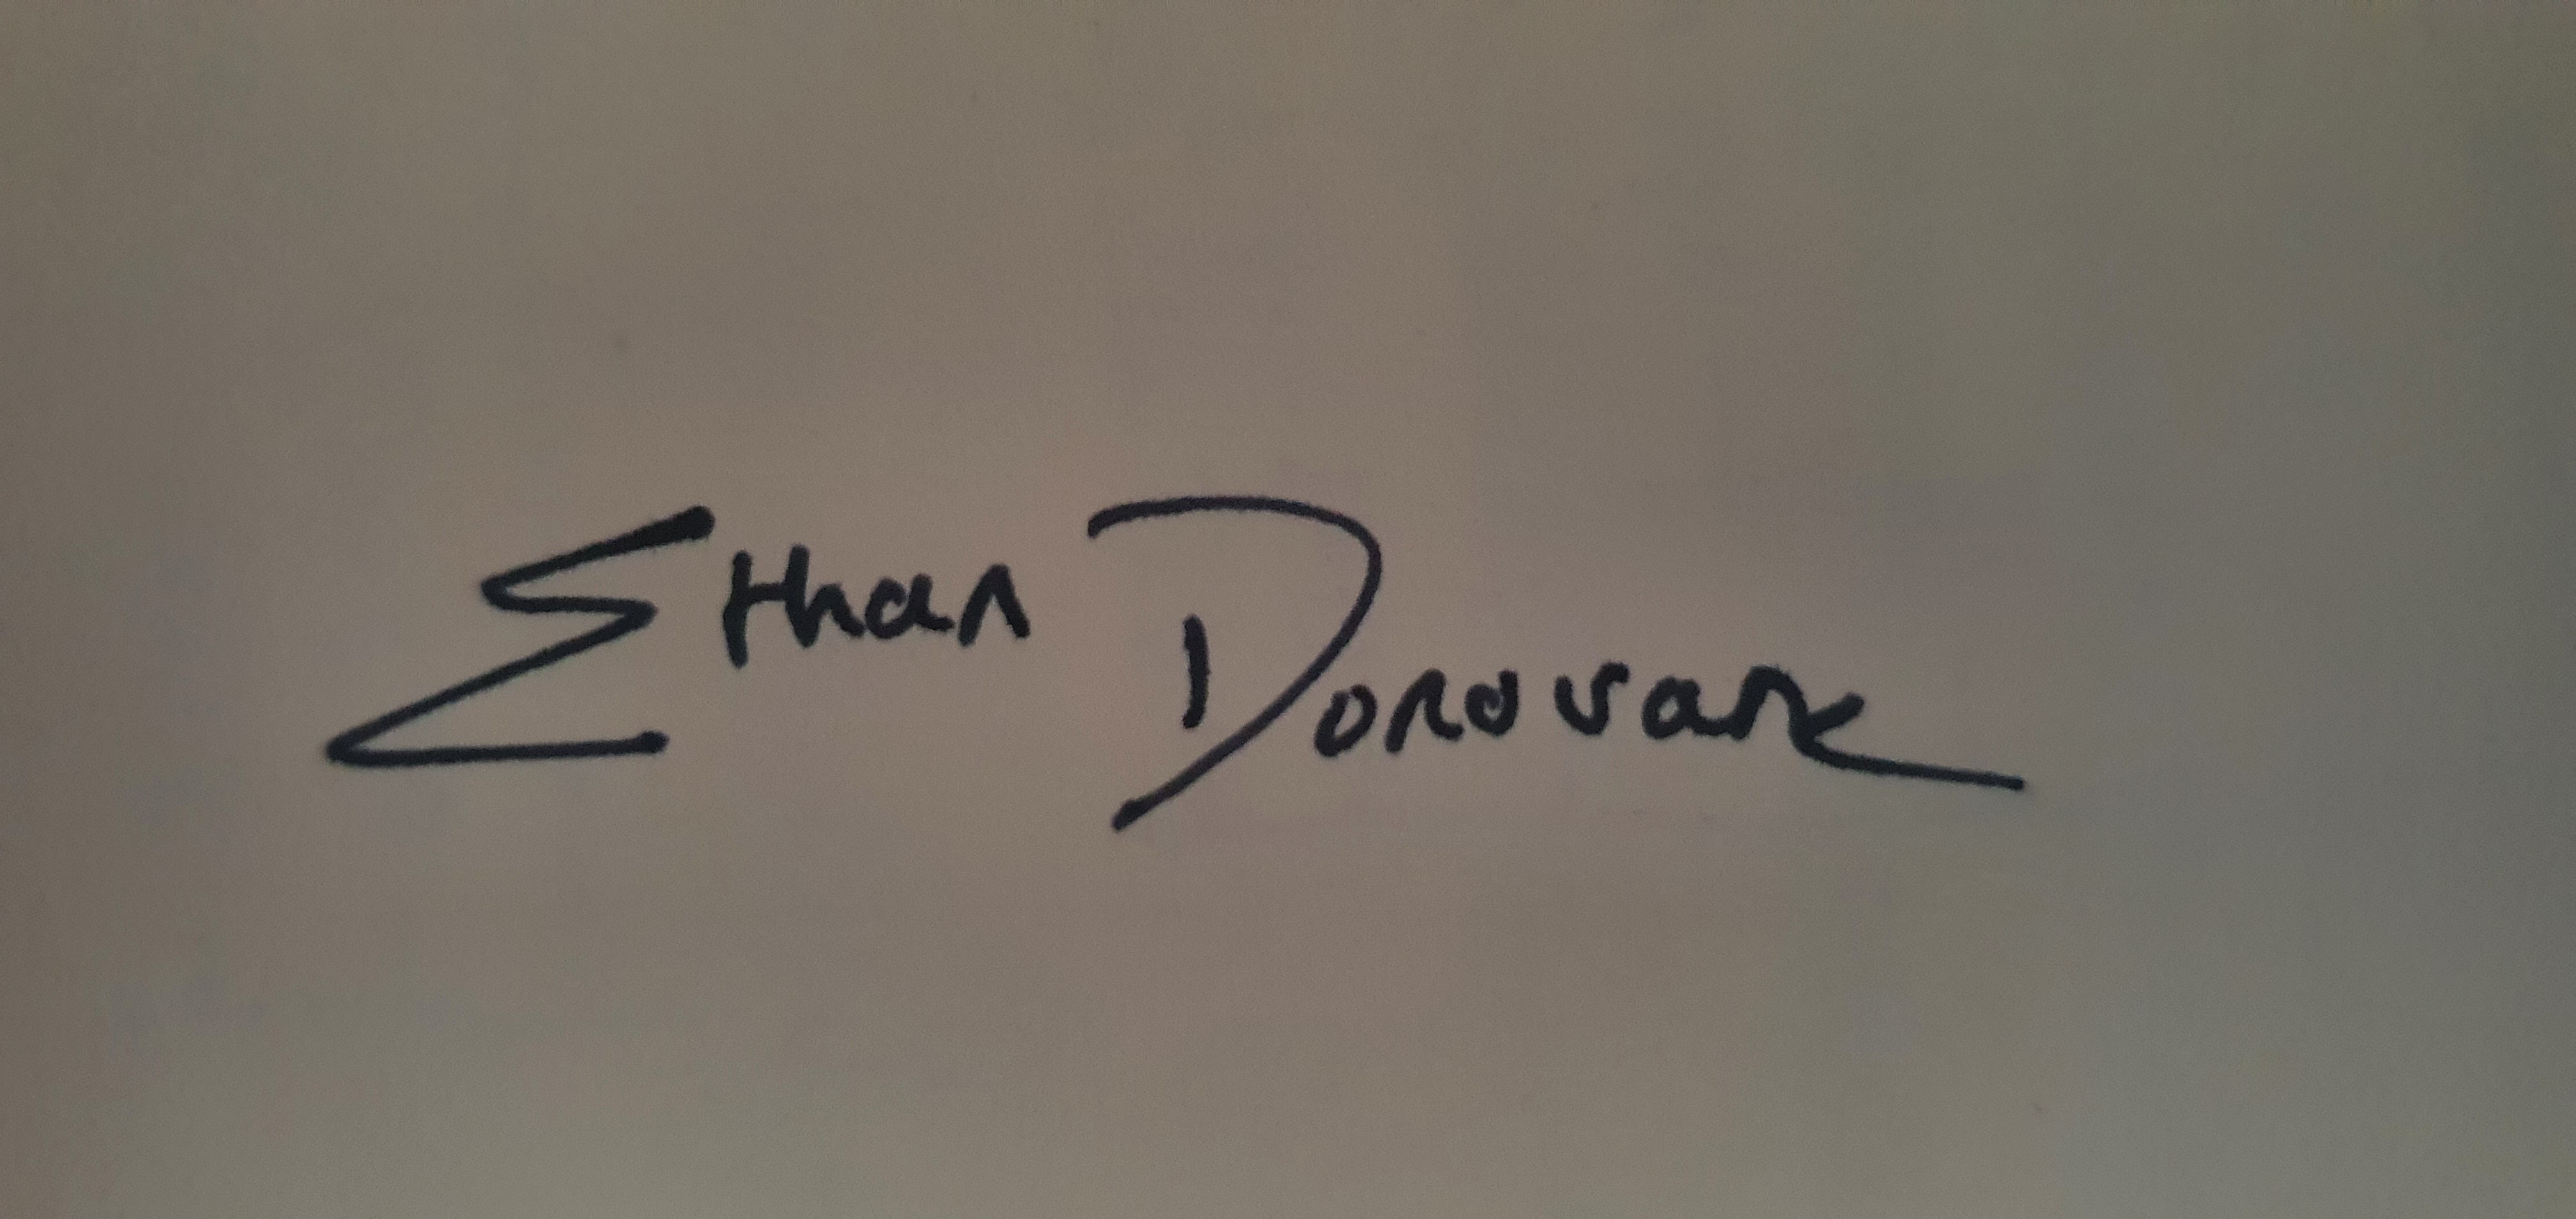 Ethan Donovan